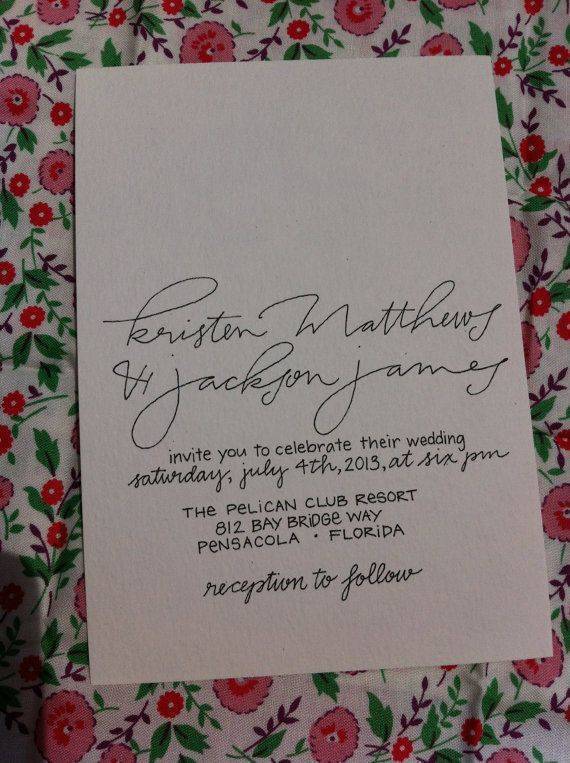 kristen Matthews
& jackson james
invite you to celebrate their wedding
saturday, july 4th, 2013, at six pm
THE PELICAN CLUB RESORT
812 BAY BRIDGE WAY
PENSACOLA • FLORIDA
reception to follow